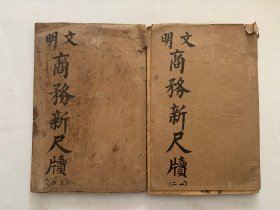 文明
商務新尺牘
(一二)
文明
商務新尺牘
(三四)